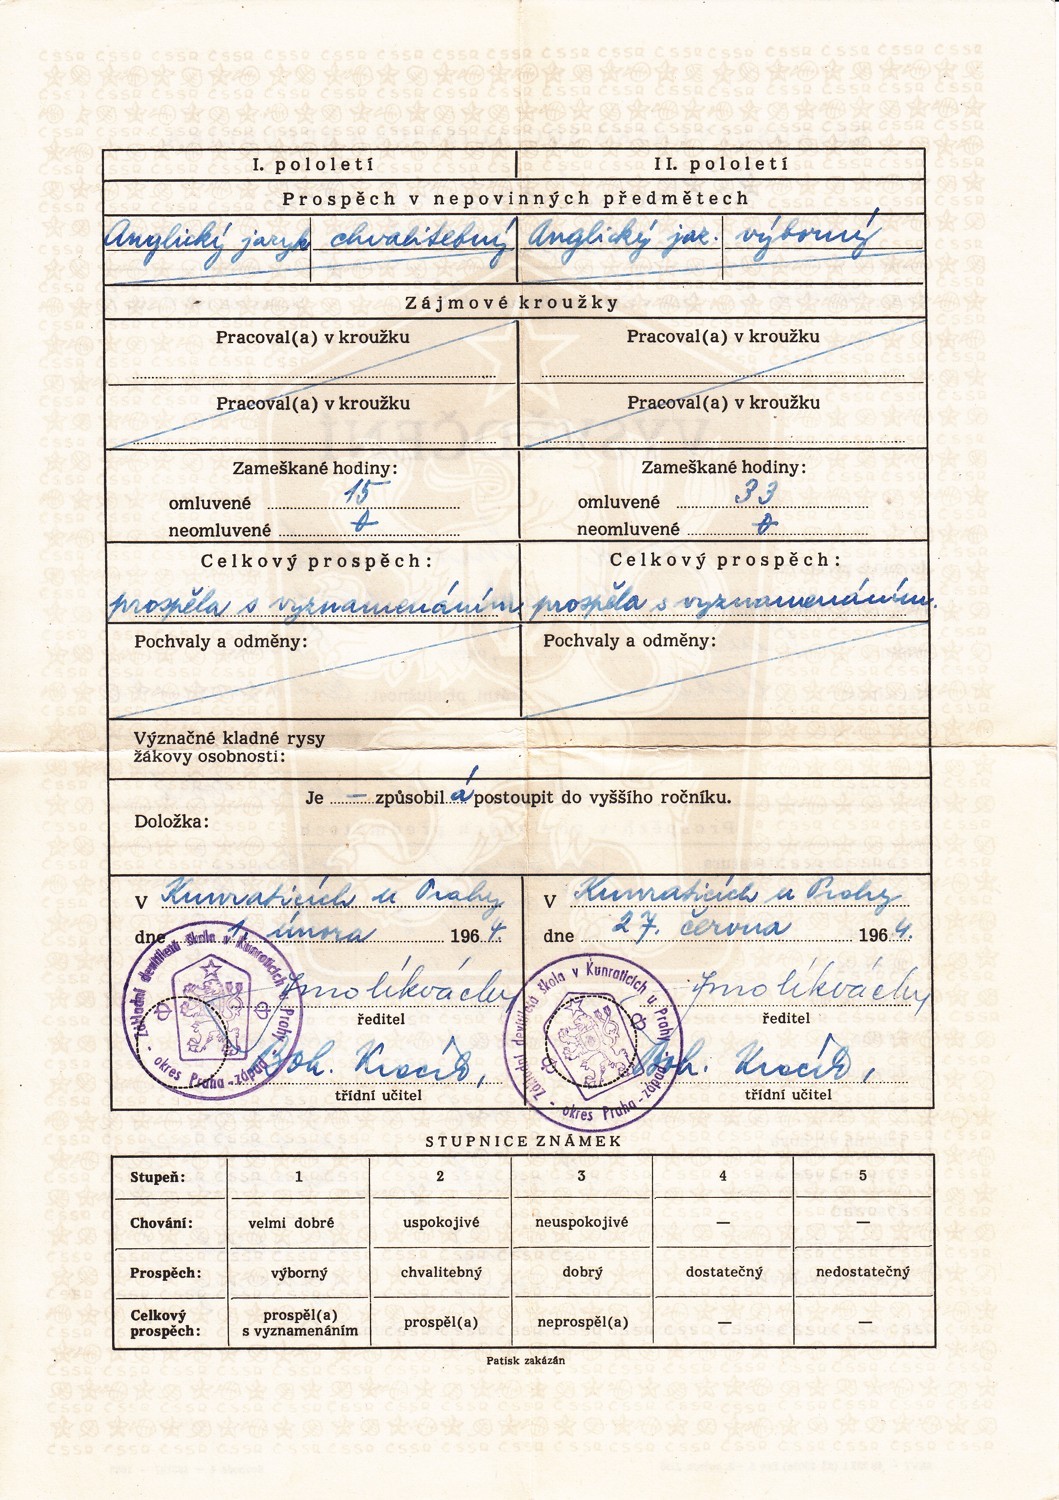 I. pololetí II. pololetí
Prospěch v nepovinných předmětech
Anglický jazyk chvalitebný Anglický jaz. výborný
Zájmové kroužky
Pracoval(a) v kroužku Pracoval(a) v kroužku
Pracoval(a) v kroužku Pracoval(a) v kroužku
Zameškané hodiny: Zameškané hodiny:
omluvené 15 omluvené 33
neomluvené 0 neomluvené 0
Celkový prospěch: Celkový prospěch:
prospěla s vyznamenáním prospěla s vyznamenáním.
Pochvaly a odměny: Pochvaly a odměny:
Význačné kladné rysy
žákovy osobnosti:
Je — způsobil á postoupit do vyššího ročníku.
Doložka:
V Kunraticích u Prahy V Kunraticích u Prahy
dne 1. února 1964. dne 27. června 1964.
ředitel ředitel
třídní učitel třídní učitel
Základní devítiletá škola v Kunraticích u Prahy - okres Praha-západ
Základní devítiletá škola v Kunraticích u Prahy - okres Praha-západ
STUPNICE ZNÁMEK
Stupeň: 1 2 3 4 5
Chování: velmi dobré uspokojivé neuspokojivé — —
Prospěch: výborný chvalitebný dobrý dostatečný nedostatečný
Celkový prospěl(a) prospěl(a) neprospěl(a) — —
prospěch: s vyznamenáním
Patisk zakázán